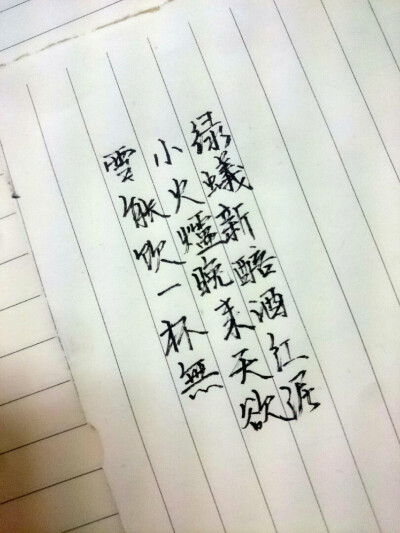 绿蟻新醅酒红泥
小火爐晚来天欲
雪能饮一杯無